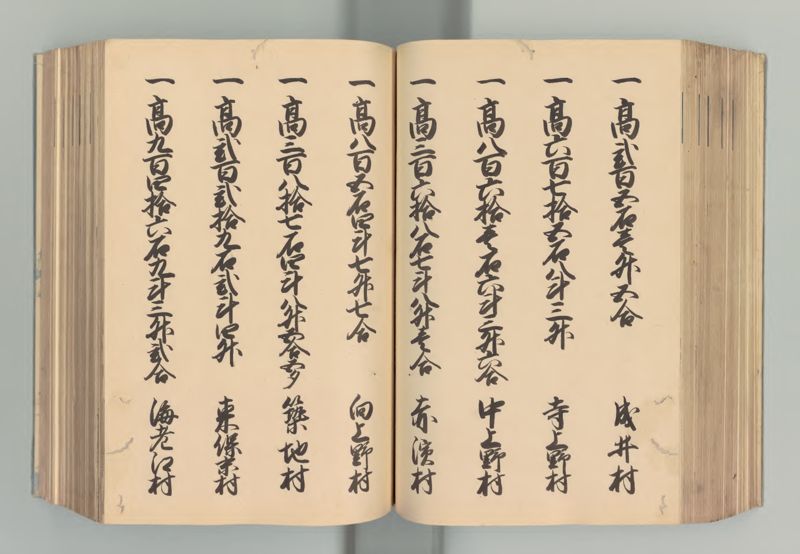 一 高弐百五石壱升五合 成井村
一 高六百七拾五石八斗三升 寺上野村
一 高八百六拾壱石六斗三升六合 中上野村
一 高三百六拾八石七斗八升壱合 赤濱村
一 高八百五石四斗七升七合 向上野村
一 高三百八拾七石四斗八升五合五夕 築地村
一 高弐百弐拾九石弐斗四升 東保末村
一 高九百四拾六石九斗三升弐合 海老江村